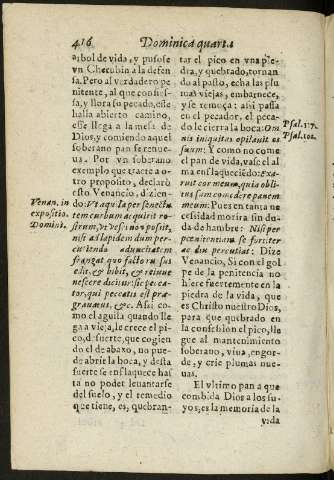 416
Dominica quarta
arbol de vida, y pusose
vn Cherubin a la defen
sa. Pero al verdadero pe
nitente, al que confies-
sa, y llora su pecado, este
halla abierto camino,
esse llega a la mesa de
Dios, y comiendo aquel
soberano pan se renue-
ua. Por vn soberano
exemplo que traere a o-
tro proposito, declarò
esto Venancio, dizien-
do:
rem curbum acquirit ro-
strum, vt vesci non possit,
nisi ad lapidem dum per-
cutiendo
frangat quo factoru sus
edit, & bibit, & reiuue
nescere
tor, qui peccatis est præ-
grauatus, &c. Assi co-
mo el aguila quando lle
ga a vieja, le crece el pi-
co, de suerte, que cogien
do el de abaxo, no pue-
de abrir la boca, y desta
suerte se enflaquece has
ta no poder leuantarse
del suelo, y el remedio
que tiene, es, quebran-
Venan. in
expositio.
Domini.
tar el pico en vna pie-
dra, y quebrado, tornan
do al pasto, echa las plu
mas viejas, embarnece,
y se remoça: assi passa
en el pecador, el peca-
do le cierra la boca: Om
nis iniquitas opilauit os
suum: Y como no come
el pan de vida, vase el al
ma enflaqueciēdo: Exa-
ruit cor meum, quia obli-
tus sum comedere panem
meum: Pues en tanta ne
cessidad morira sin du-
da de hambre: Nisi per
pœnitentiam se fortiter
ac diu percutiat: Dize
Venancio, Si con el gol
pe de la penitencia no
hiere fuertemente en la
piedra de la vida, que
es Christo nuestro Dios,
para que quebrado en
la confession el pico, lle
gue al mantenimiento
soberano, viua, engor-
de, y crie plumas nue-
uas.
El vltimo pan a que
combida Dios a los su-
yos, es la memoria de la
vida
Psal.
Psal. 101.